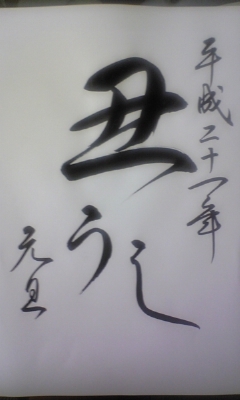 平成二十一年
丑
うし
元旦